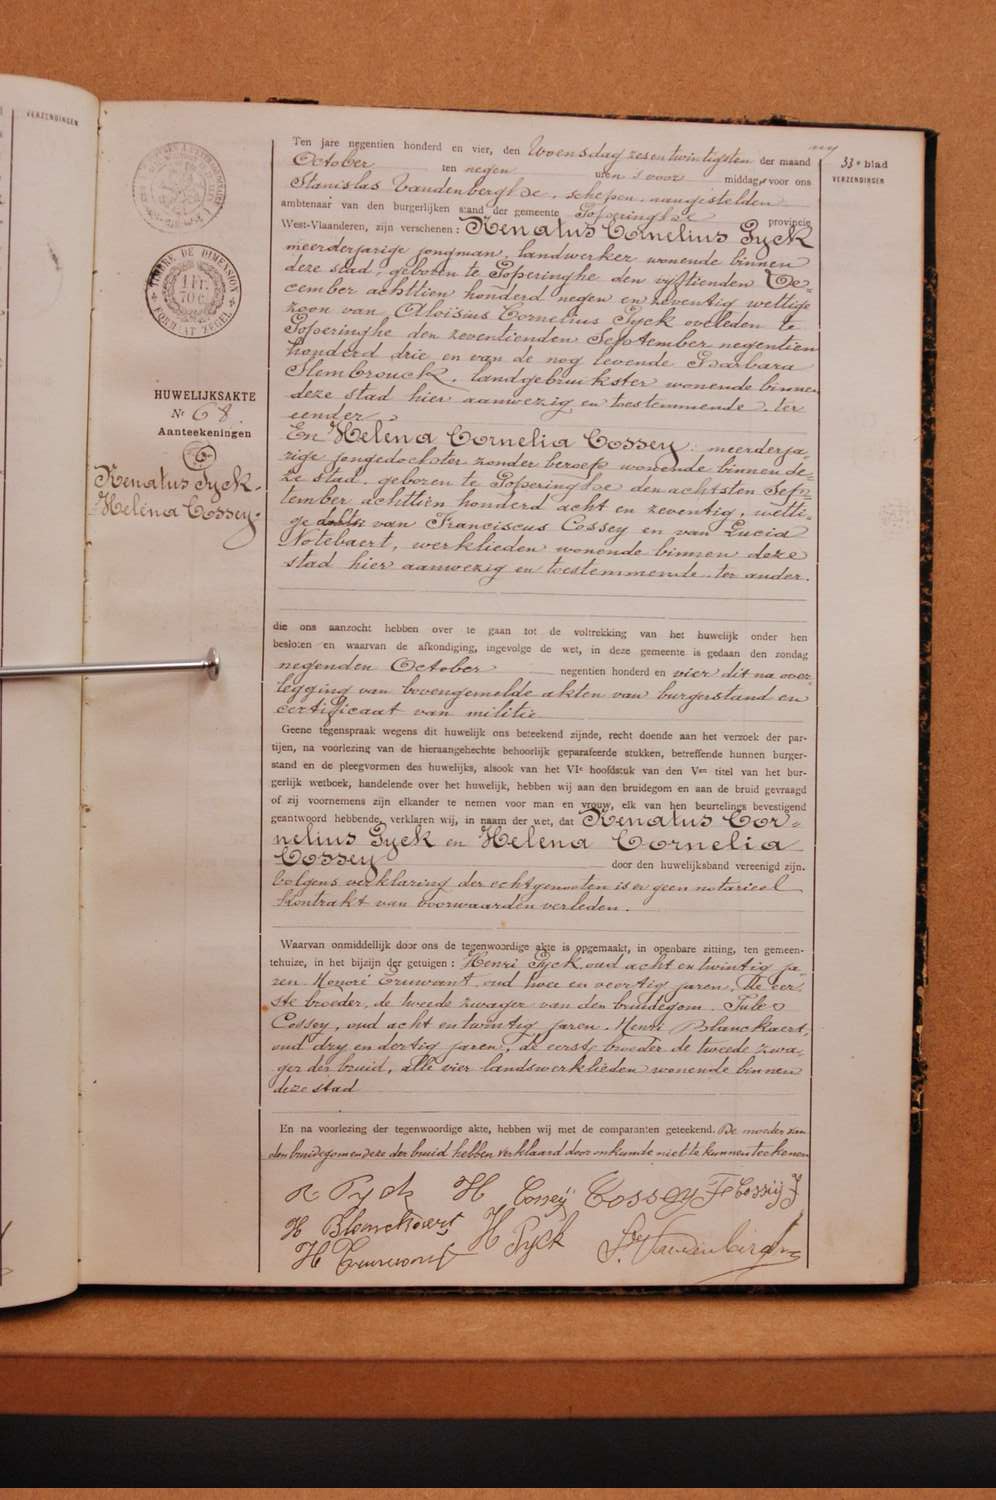 VERZENDINGEN
33e blad
VERZENDINGEN
TIMBRE DE DIMENSION
1 Fr. 70 c.
FORMAAT ZEGEL
HUWELIJKSAKTE
No 68
Aanteekeningen
Renatus Pyck.
Helena Cossey.
Ten jare negentien honderd en vier, den Woensdag zesentwintigsten der maand
October ten negen uren 's voor middag, voor ons
Stanislas Vandenberghe, schepen aangestelden
ambtenaar van den burgerlijken stand der gemeente Poperinghe provincie
West-Vlaanderen, zijn verschenen: Renatus Cornelius Pyck
meerderjarige jongman, landwerker wonende binnen
deze stad, geboren te Poperinghe den vijftienden De-
cember achttien honderd negen en zeventig wettige
zoon van Aloisius Cornelius Pyck overleden te
Poperinghe den zeventienden September negentien
honderd drie en van de nog levende Barbara
Slembrouck, landgebruikster wonende binnen
deze stad hier aanwezig en toestemmende, ter
eender
En Helena Cornelia Cossey: meerderja-
rige jongedochter zonder beroep wonende binnen de-
ze stad, geboren te Poperinghe den achtsten Sep-
tember achttien honderd acht en zeventig, wetti-
ge van Franciscus Cossey en van Lucia
Notebaert, werklieden wonende binnen deze
stad hier aanwezig en toestemmende, ter ander.
die ons aanzocht hebben over te gaan tot de voltrekking van het huwelijk onder hen
besloten en waarvan de afkondiging, ingevolge de wet, in deze gemeente is gedaan den zondag
negenden October negentien honderd en vier dit na over-
legging van bovengemelde akten van burgerstand en
certificaat van militie
Geene tegenspraak wegens dit huwelijk ons beteekend zijnde, recht doende aan het verzoek der par-
tijen, na voorlezing van de hieraangehechte behoorlijk geparafeerde stukken, betreffende hunnen burger-
stand en de pleegvormen des huwelijks, alsook van het VIe hoofdstuk van den Ven titel van het bur-
gerlijk wetboek, handelende over het huwelijk, hebben wij aan den bruidegom en aan de bruid gevraagd
of zij voornemens zijn elkander te nemen voor man en vrouw, elk van hen beurtelings bevestigend
geantwoord hebbende, verklaren wij, in naam der wet, dat Renatus Cor-
nelius Pyck en Helena Cornelia
Cossey door den huwelijksband vereenigd zijn.
Volgens verklaring der echtgenooten is er geen notarieel
kontrakt van voorwaarden verleden.
Waarvan onmiddellijk door ons de tegenwoordige akte is opgemaakt, in openbare zitting, ten gemeen-
tehuize, in het bijzijn der getuigen: Henri Pyck oud acht en twintig ja-
ren Honoré Cruwant oud twee en veertig jaren, De eer-
ste broeder, de tweede zwager van den bruidegom Jules
Cossey, oud acht en twintig jaren, Henri Blanckaert,
oud dry en dertig jaren, de eerste broeder de tweede zwa-
ger der bruid, alle vier landswerklieden wonende binnen
deze stad
En na voorlezing der tegenwoordige akte, hebben wij met de comparanten geteekend. De moeder van
den bruidegom en deze der bruid hebben verklaard door onkunde niet te kunnen teekenen
R Pyck H Cossey Cossey F Cossey J
H Blanckaert H Pyck St. Vandenberghe
H